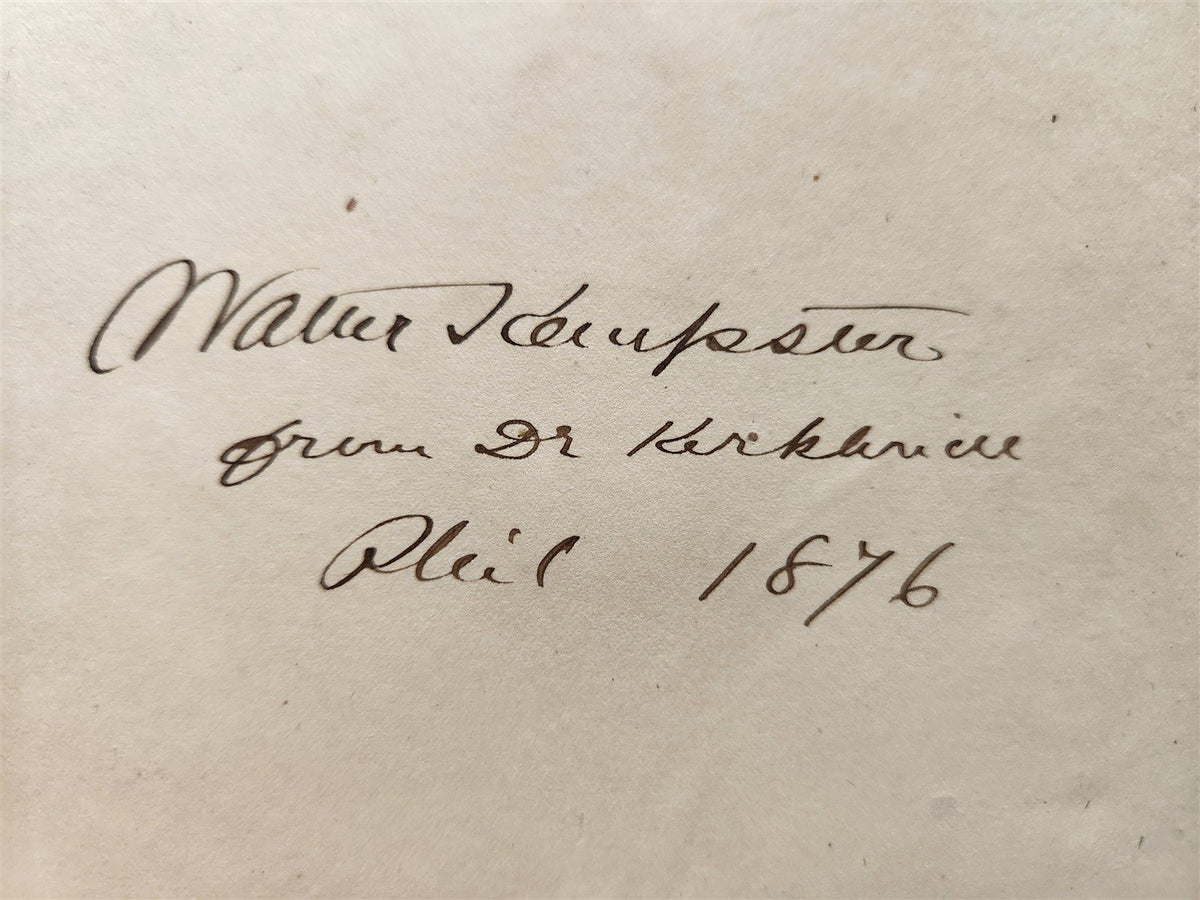 Walter Kempster
from Dr Kirkbride
Phil 1876